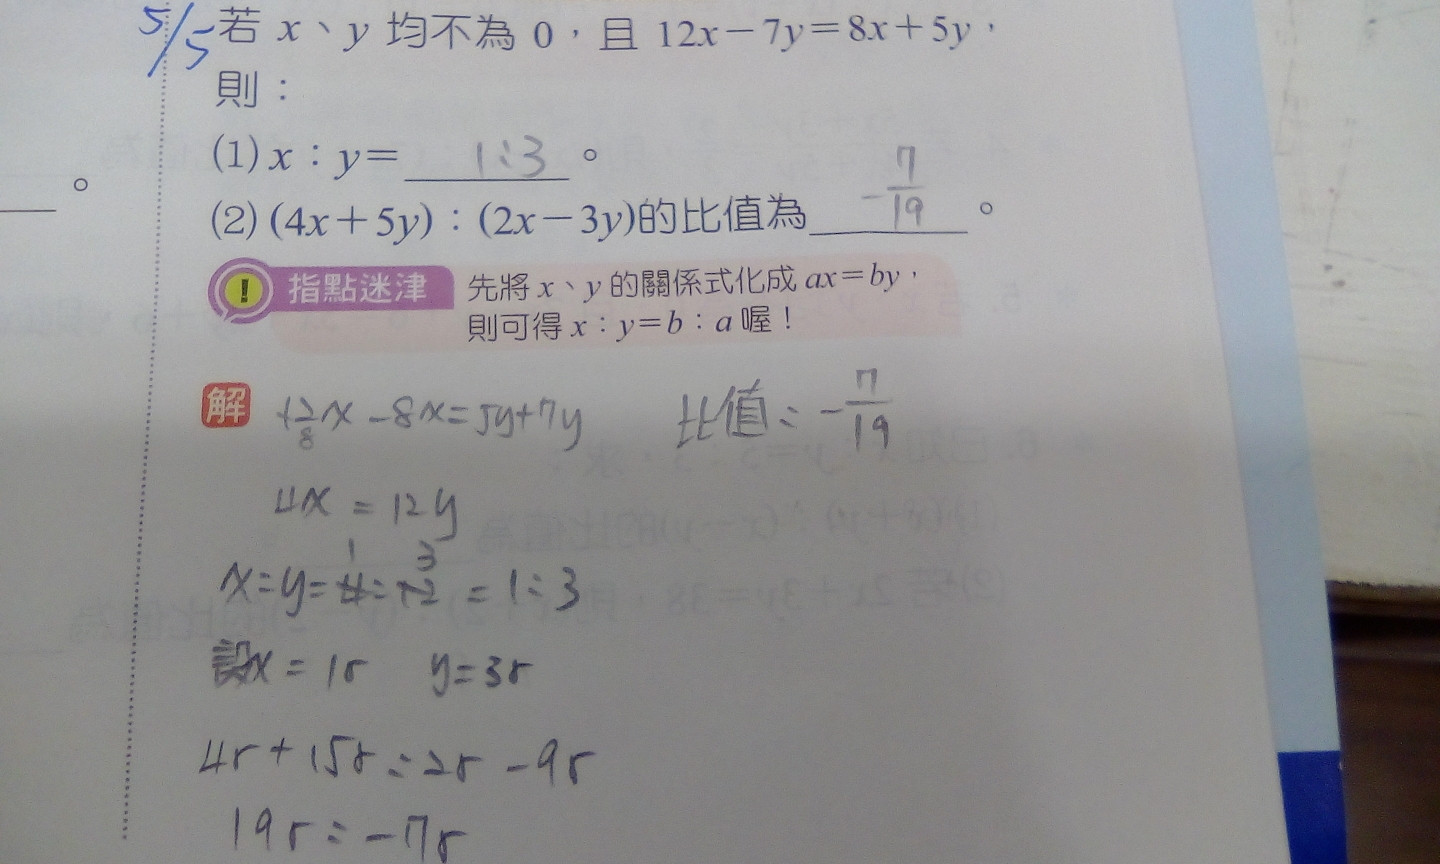 5/5
若 x、y 均不為 0，且 12x－7y＝8x＋5y，
則：
(1) x：y＝ 1:3 。
。
(2) (4x＋5y)：(2x－3y)的比值為 -7/19 。
指點迷津 先將 x、y 的關係式化成 ax＝by，
則可得 x：y＝b：a 喔！
解 12x - 8x = 5y+7y
8
比值 = -7/19
4x = 12y
1 3
x:y = 4:12 = 1:3
設x = 1r y=3r
4r + 15r : 2r - 9r
19r : -7r